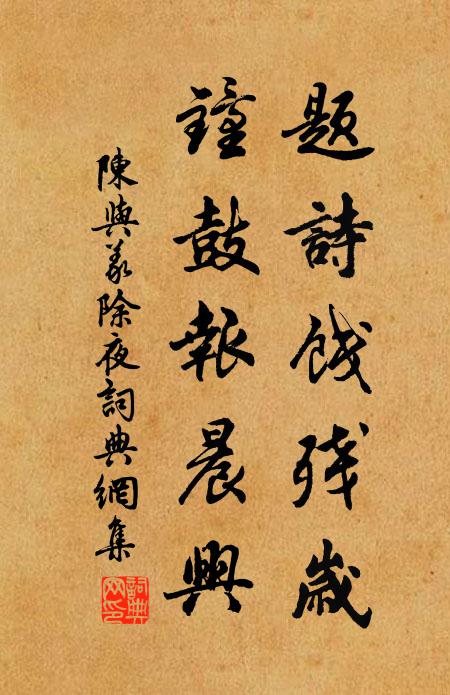 題詩餞殘歲
鐘鼓報晨興
陳與義除夜詞典網集
詞典网印